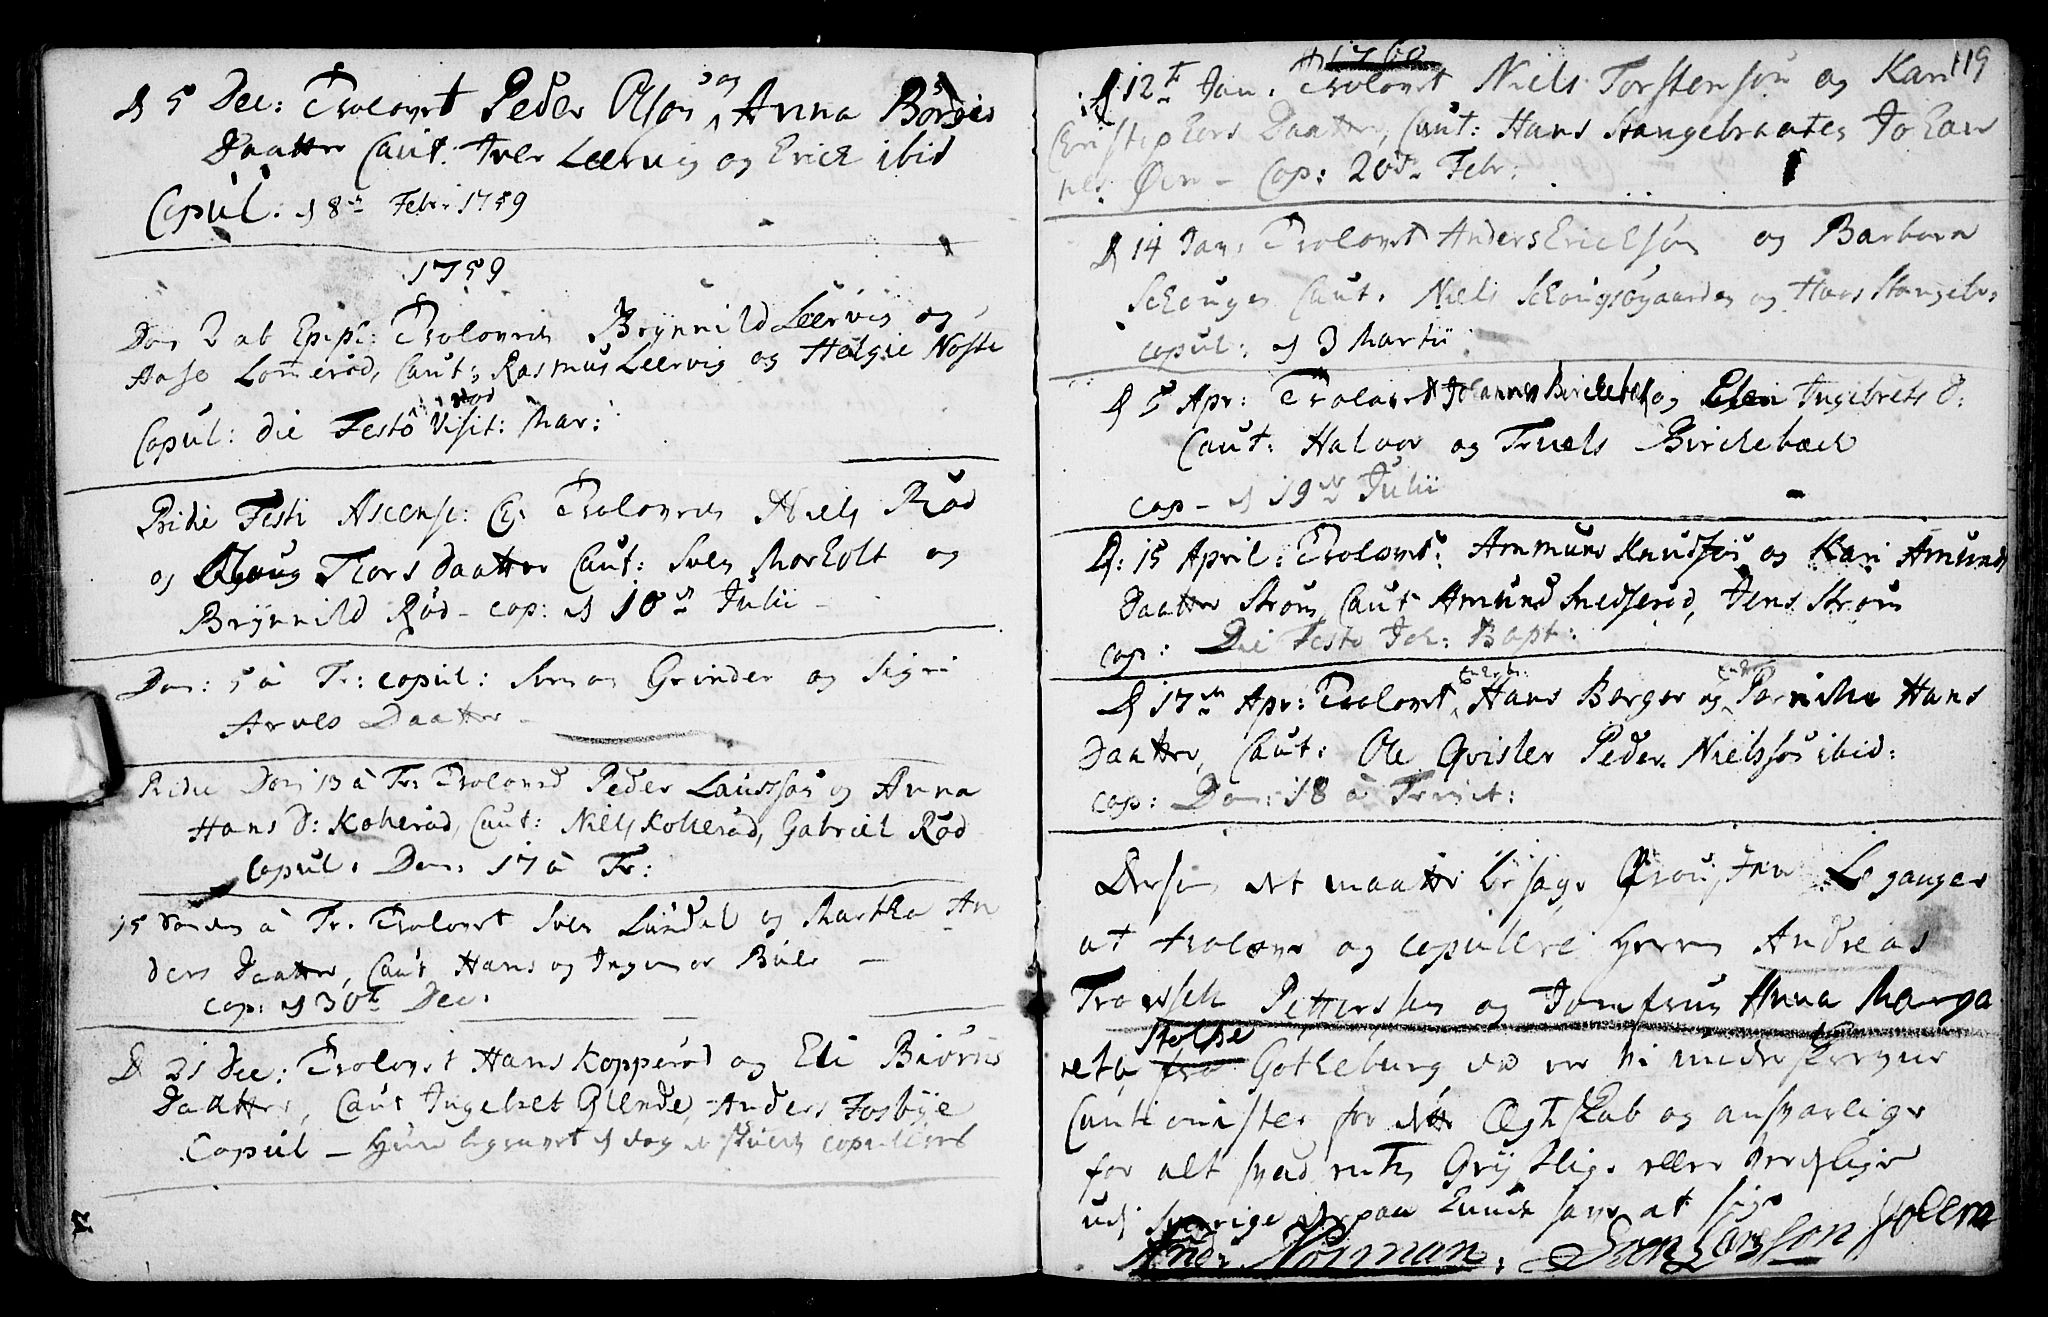 d 5 Dec: Trolovet Peder Olsøn og Anna Børges
Daatter Caut. Iver Leervig og Erich ibid
Copul. d 8de Febr: 1759
1759
Dom 2 ab Epiph: Troloveden Brynnild Leervig og
Aase Lommerød, Caut: Rasmus Leervig og Helgie Noste
rød
Copul: die Festo Visit: Mar:
Pridie Festi Ascens: Troloveden Niels Rød
og Thors daatter Caut: Sven Morholt og
Brynnild Rød - cop: d 10de Julii -
Dom: 5 à Tr: copul: Simon Grinder og Sigri
Arves Daatter -
Pridie Dom 13 à Tr: Troloved Peder Laursøn og Anna
Hans D: Kokerød, Caut: Niels Kokerød, Gabriel Rød
Copul. Dom. 17 à Tr:
15 Sønden à Tr. Trolovet Sven Lundal og Martha An
ders Daatter, Caut Hans og Ingemor Buer -
cop: d 30te Dec.
D 21 Dec: Trolovet Hans Kopperød og Eli Biørns
Daatter, Caut Ingebret Glende, Anders Fosbye
Copul - Hun begravet d dag de skulle copuleres
119
1760
D 12te Jan. Trolovet Niels Torstensøn og Kari
Christophers Daatter, Caut: Hans Stangebraaten Johan
nes Øen - Cop: 20de Febr:
D 14 Jan: Trolovet Anders Ericksøn og Barbara
Schouger Caut. Niels Schougsøgaarden og Hans Stangebr.
copul: d 3 Martii
D 5 Apr: Trolovet Johannes Birckebek og Elen Ingebrets D:
Caut: Halvor og Truels Birckebæck
cop - d 19de Julii
D: 15 April: Trolovet: Ammund Knudsøn og Kari Amunds
Daatter Strøm, Caut Amund Smedserød, Jens Strøm
cop: Die Festo Joh: Bapt:
D 17de Apr: Trolovet Hans Borger og Pernille Hans
Daatter, Caut: Ole Qvisler Peder Nielssøn ibid:
cop: Dom: 18 à Trinit:
Dersom det maatte behage at
at trolove og copulere Herren Andreas
Pettersson og Jomfrue Anna Marga
Stolpe
reta fra Gotheburg da ere vi under
Cautionister for dette Ægteskab og ansvarlige
for alt hvad eller
udj Sverige derpaa kunde have at sige
And: Norman. Sven Larsson Holem